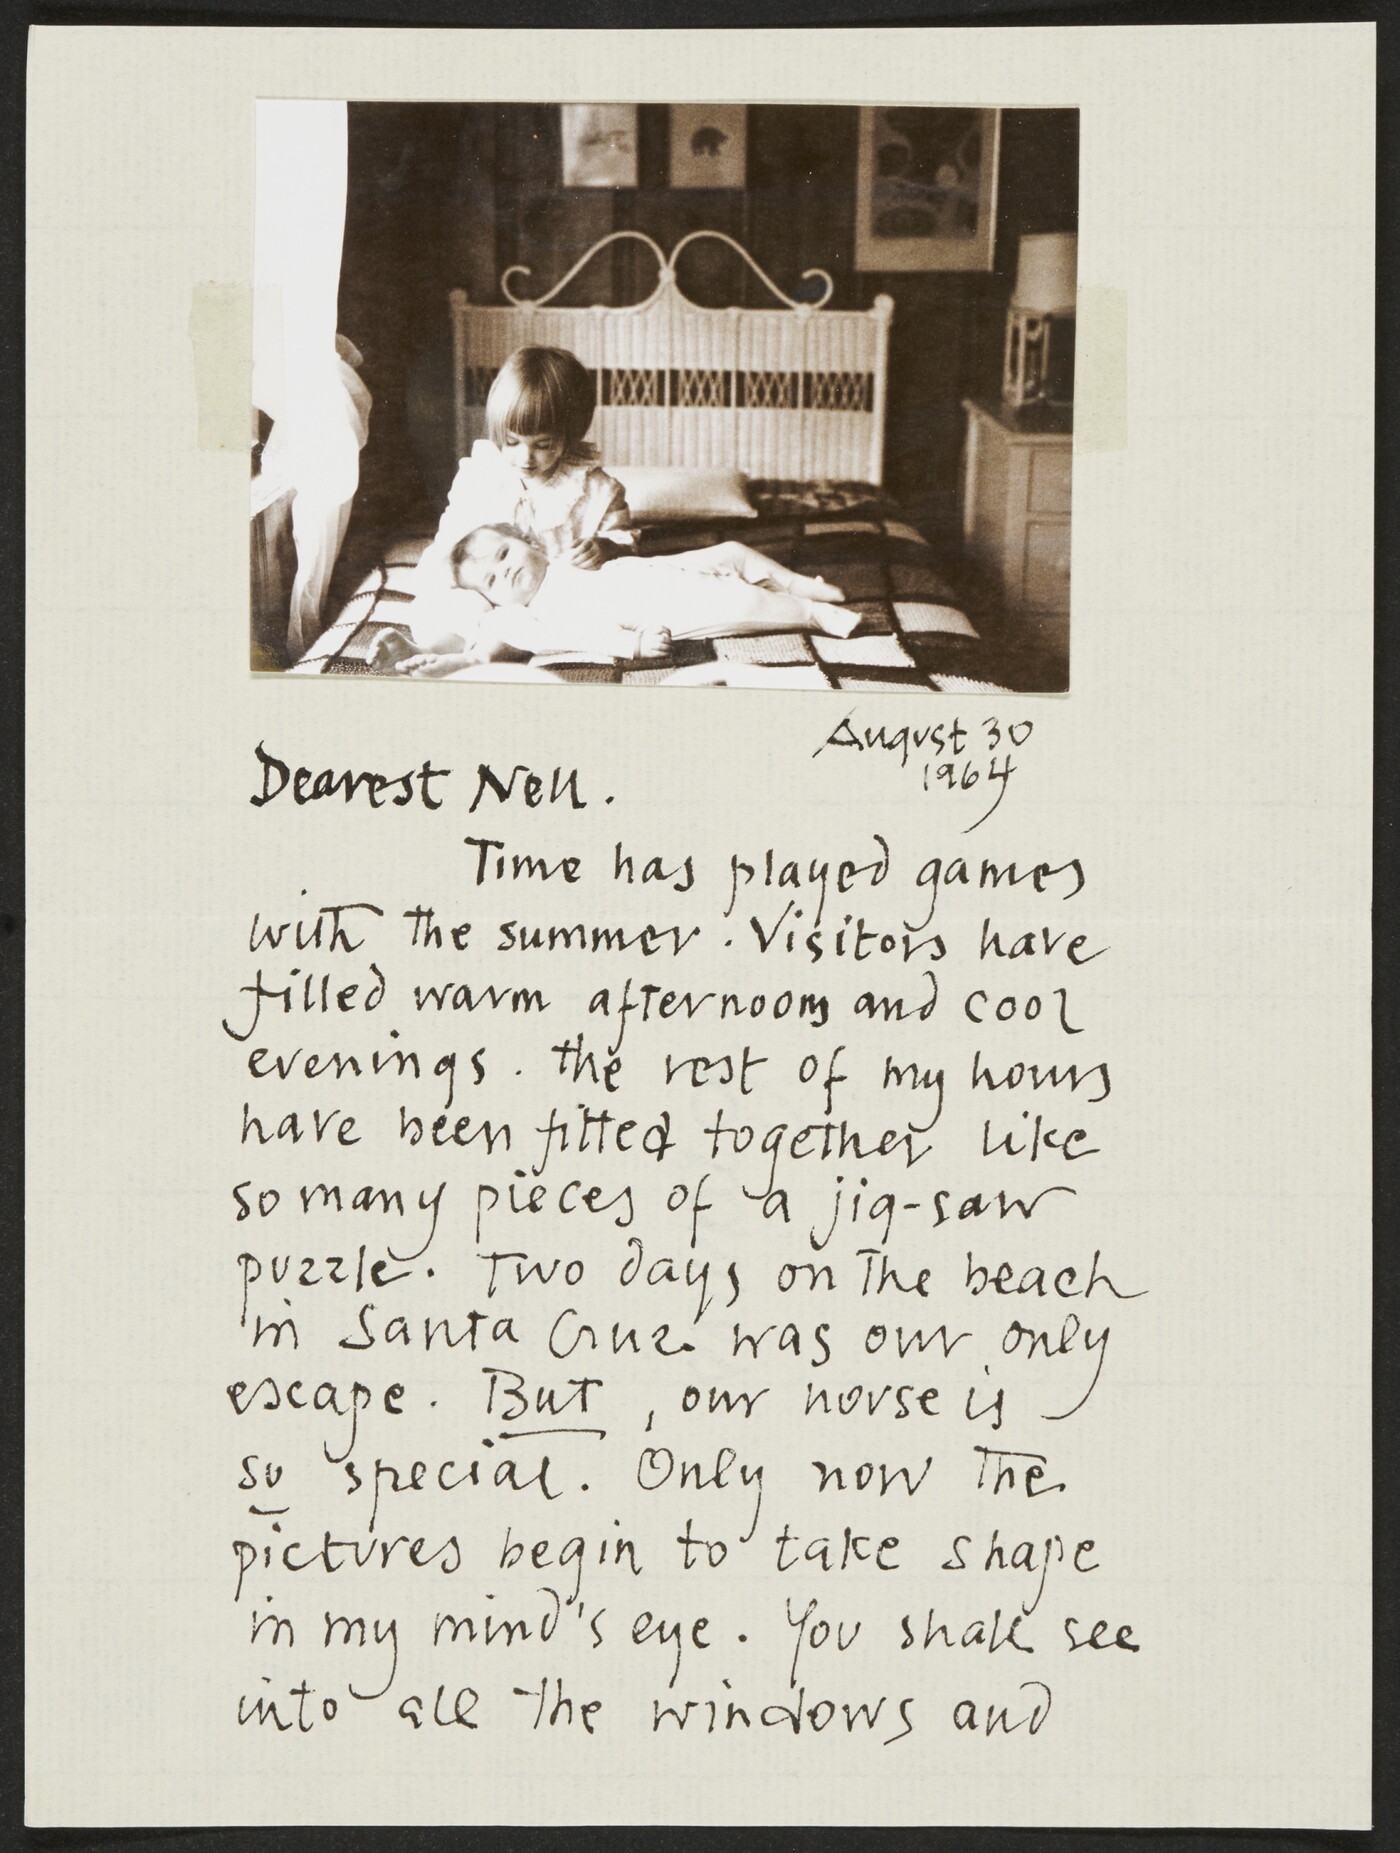 August 30
1964
Dearest Nell.
Time has played games
with the summer. Visitors have
filled warm afternoons and cool
evenings. The rest of my hours
have been fitted together like
so many pieces of a jig-saw
puzzle. Two days on the beach
in Santa Cruz was our only
escape. But, our house is
so special. Only now the
pictures begin to take shape
in my mind's eye. You shall see
into all the windows and